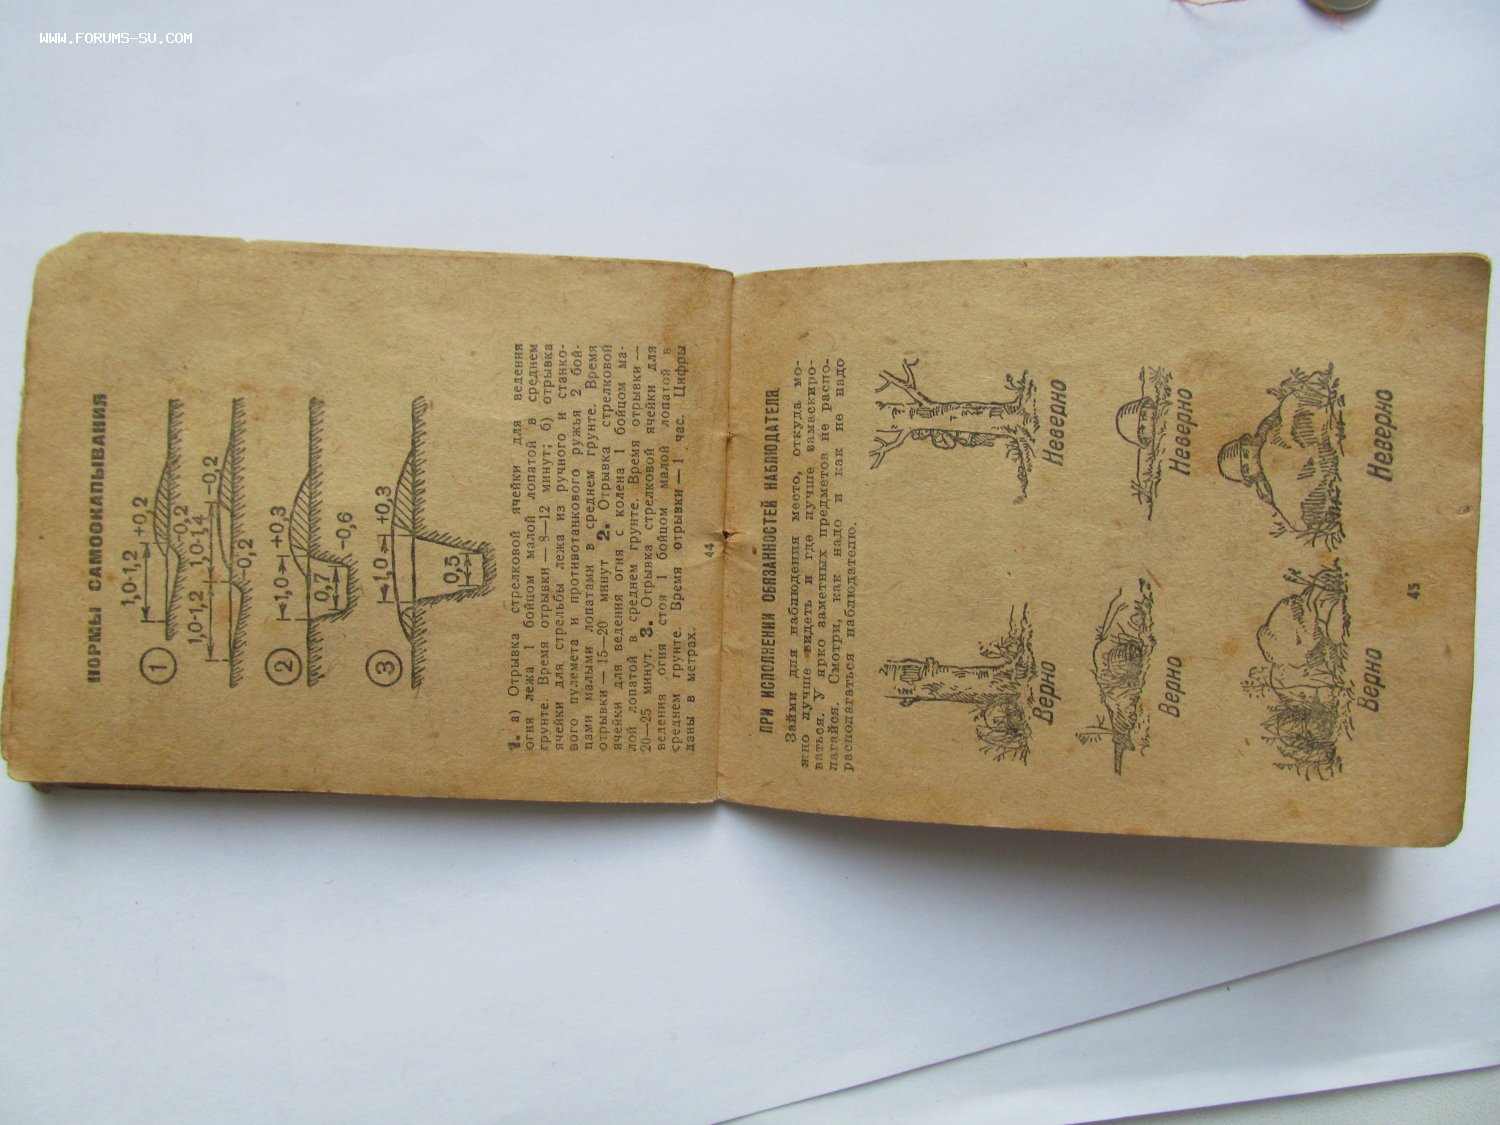 WWW.FORUMS-SU.COM
НОРМЫ САМООКАПЫВАНИЯ
1
1,0-1,2
+0,2
-0,2
1,0-1,2
1,0-1,4
-0,2
-0,2
2
1,0
+0,3
0,7
-0,6
3
1,0
+0,3
0,5
1. а) Отрывка стрелковой ячейки для ведения
огня лежа 1 бойцом малой лопатой в среднем
грунте. Время отрывки — 8—12 минут; б) отрывка
ячейки для стрельбы лежа из ручного и станко-
вого пулемета и противотанкового ружья 2 бой-
цами малыми лопатами в среднем грунте. Время
отрывки — 15—20 минут 2. Отрывка стрелковой
ячейки для ведения огня с колена 1 бойцом ма-
лой лопатой в среднем грунте. Время отрывки —
20—25 минут. 3. Отрывка стрелковой ячейки для
ведения огня стоя 1 бойцом малой лопатой в
среднем грунте. Время отрывки — 1 час. Цифры
даны в метрах.
44
ПРИ ИСПОЛНЕНИИ ОБЯЗАННОСТЕЙ НАБЛЮДАТЕЛЯ
Займи для наблюдения место, откуда мо-
жно лучше видеть и где лучше замаскиро-
ваться. У ярко заметных предметов не распо-
лагайся. Смотри, как надо и как не надо
располагаться наблюдателю.
Верно
Неверно
Верно
Неверно
Верно
Неверно
45